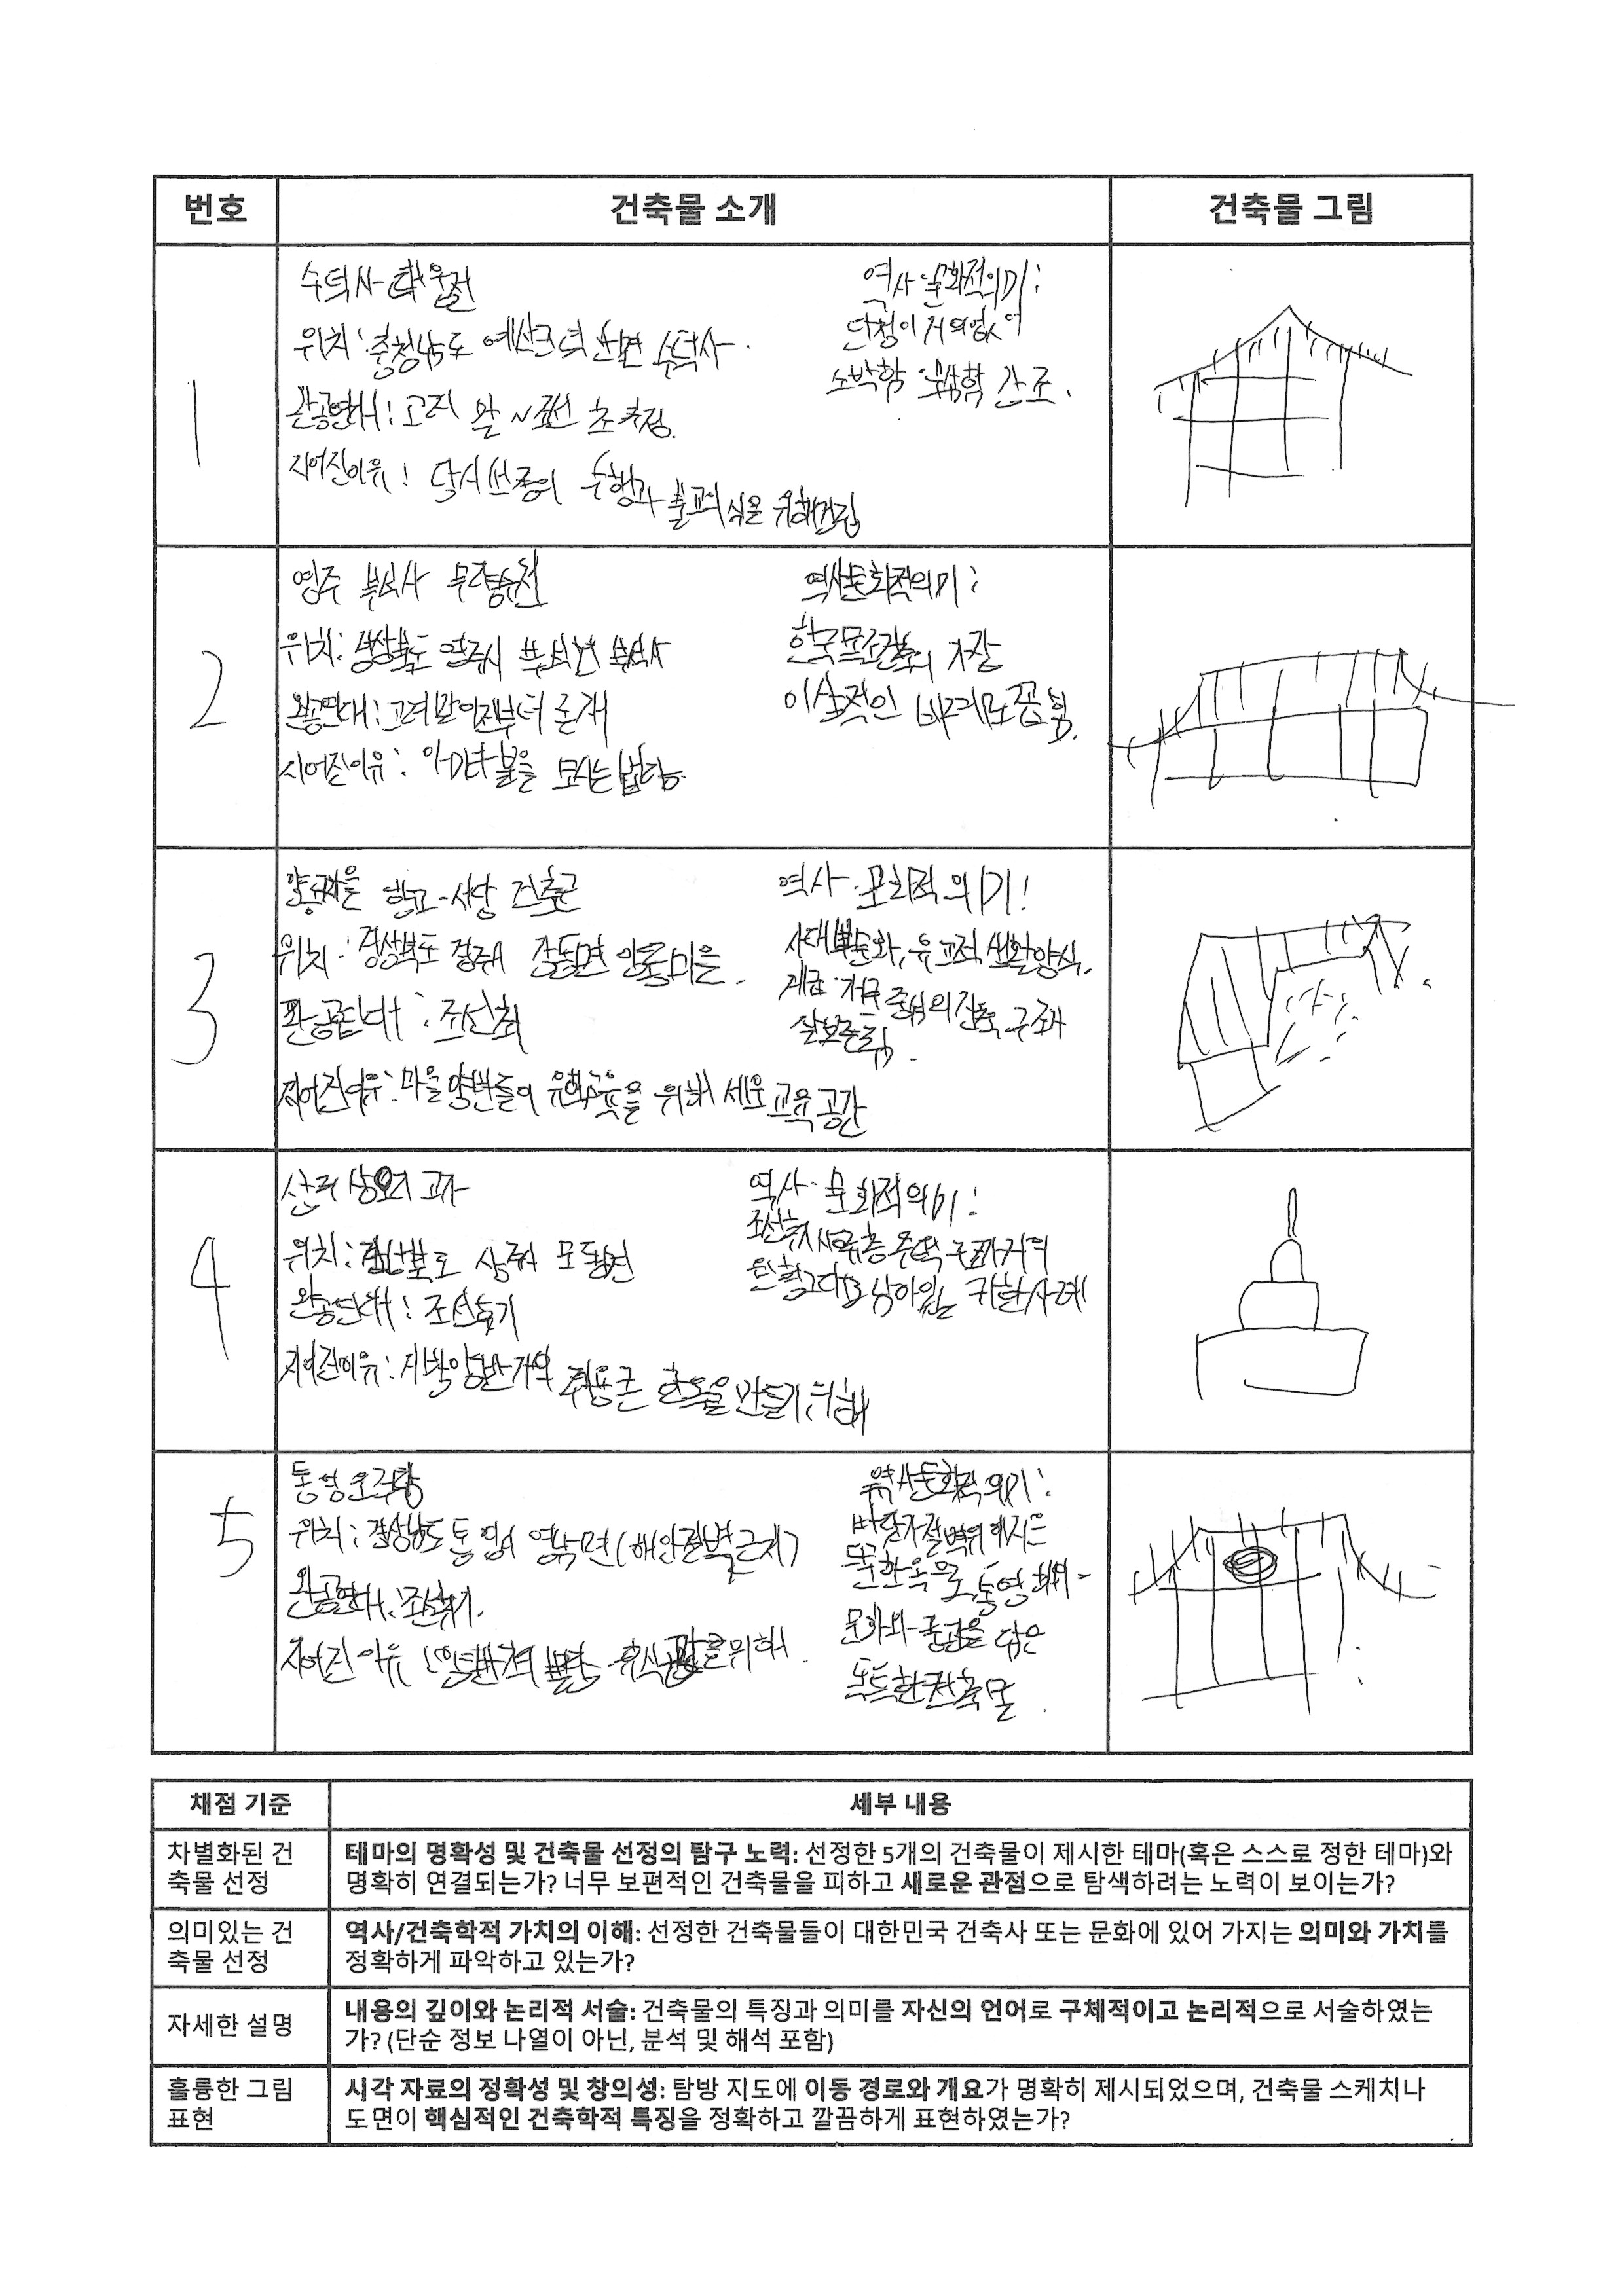 번호 건축물 소개 건축물 그림
1
수덕사 대웅전
위치: 충청남도 예산군 덕산면 수덕사.
완공연대: 고려 말 ~ 조선 초 추정.
지어진이유: 당시 의 수행과 불교의식을 위해건립
역사·문화적의미:
단청이 거의없어
소박함 강조.
2
영주 부석사 무량수전
위치: 경상북도 영주시 부석면 부석사
완공연대: 고려 부터 존재
지어진이유: 아미타불을 모시는
역사문화적의미:
한국목조건축의 가장
이상적인 꼽힘.
3
양동마을 향교-서당 건축군
위치: 경상북도 경주시 강동면 양동마을.
완공연대: 조선
지어진이유: 마을 양반들이 유학교육을 위해 세운 교육공간
역사·문화적 의미:
사대부문화, 유교적 생활양식,
중심의 건축 구조가
잘보존됨.
4
고가
위치: 경상북도 상주시 모동면
완공연대: 조선후기
지어진이유: 지방양반가의 만들기위해
역사·문화적의미:
조선후기 주택
원형그대로 남아있는 귀한사례
5
통영
위치: 경상남도 통영시 (해안절벽근처)
완공연대: 조선후기.
지어진 이유: 위해.
역사문화적 의미:
바닷가절벽위에지은
한옥으로, 통영
문화와 풍경을 담은
독특한건축물.
채점 기준 세부 내용
차별화된 건
축물 선정
테마의 명확성 및 건축물 선정의 탐구 노력: 선정한 5개의 건축물이 제시한 테마(혹은 스스로 정한 테마)와
명확히 연결되는가? 너무 보편적인 건축물을 피하고 새로운 관점으로 탐색하려는 노력이 보이는가?
의미있는 건
축물 선정
역사/건축학적 가치의 이해: 선정한 건축물들이 대한민국 건축사 또는 문화에 있어 가지는 의미와 가치를
정확하게 파악하고 있는가?
자세한 설명
내용의 깊이와 논리적 서술: 건축물의 특징과 의미를 자신의 언어로 구체적이고 논리적으로 서술하였는
가? (단순 정보 나열이 아닌, 분석 및 해석 포함)
훌륭한 그림
표현
시각 자료의 정확성 및 창의성: 탐방 지도에 이동 경로와 개요가 명확히 제시되었으며, 건축물 스케치나
도면이 핵심적인 건축학적 특징을 정확하고 깔끔하게 표현하였는가?